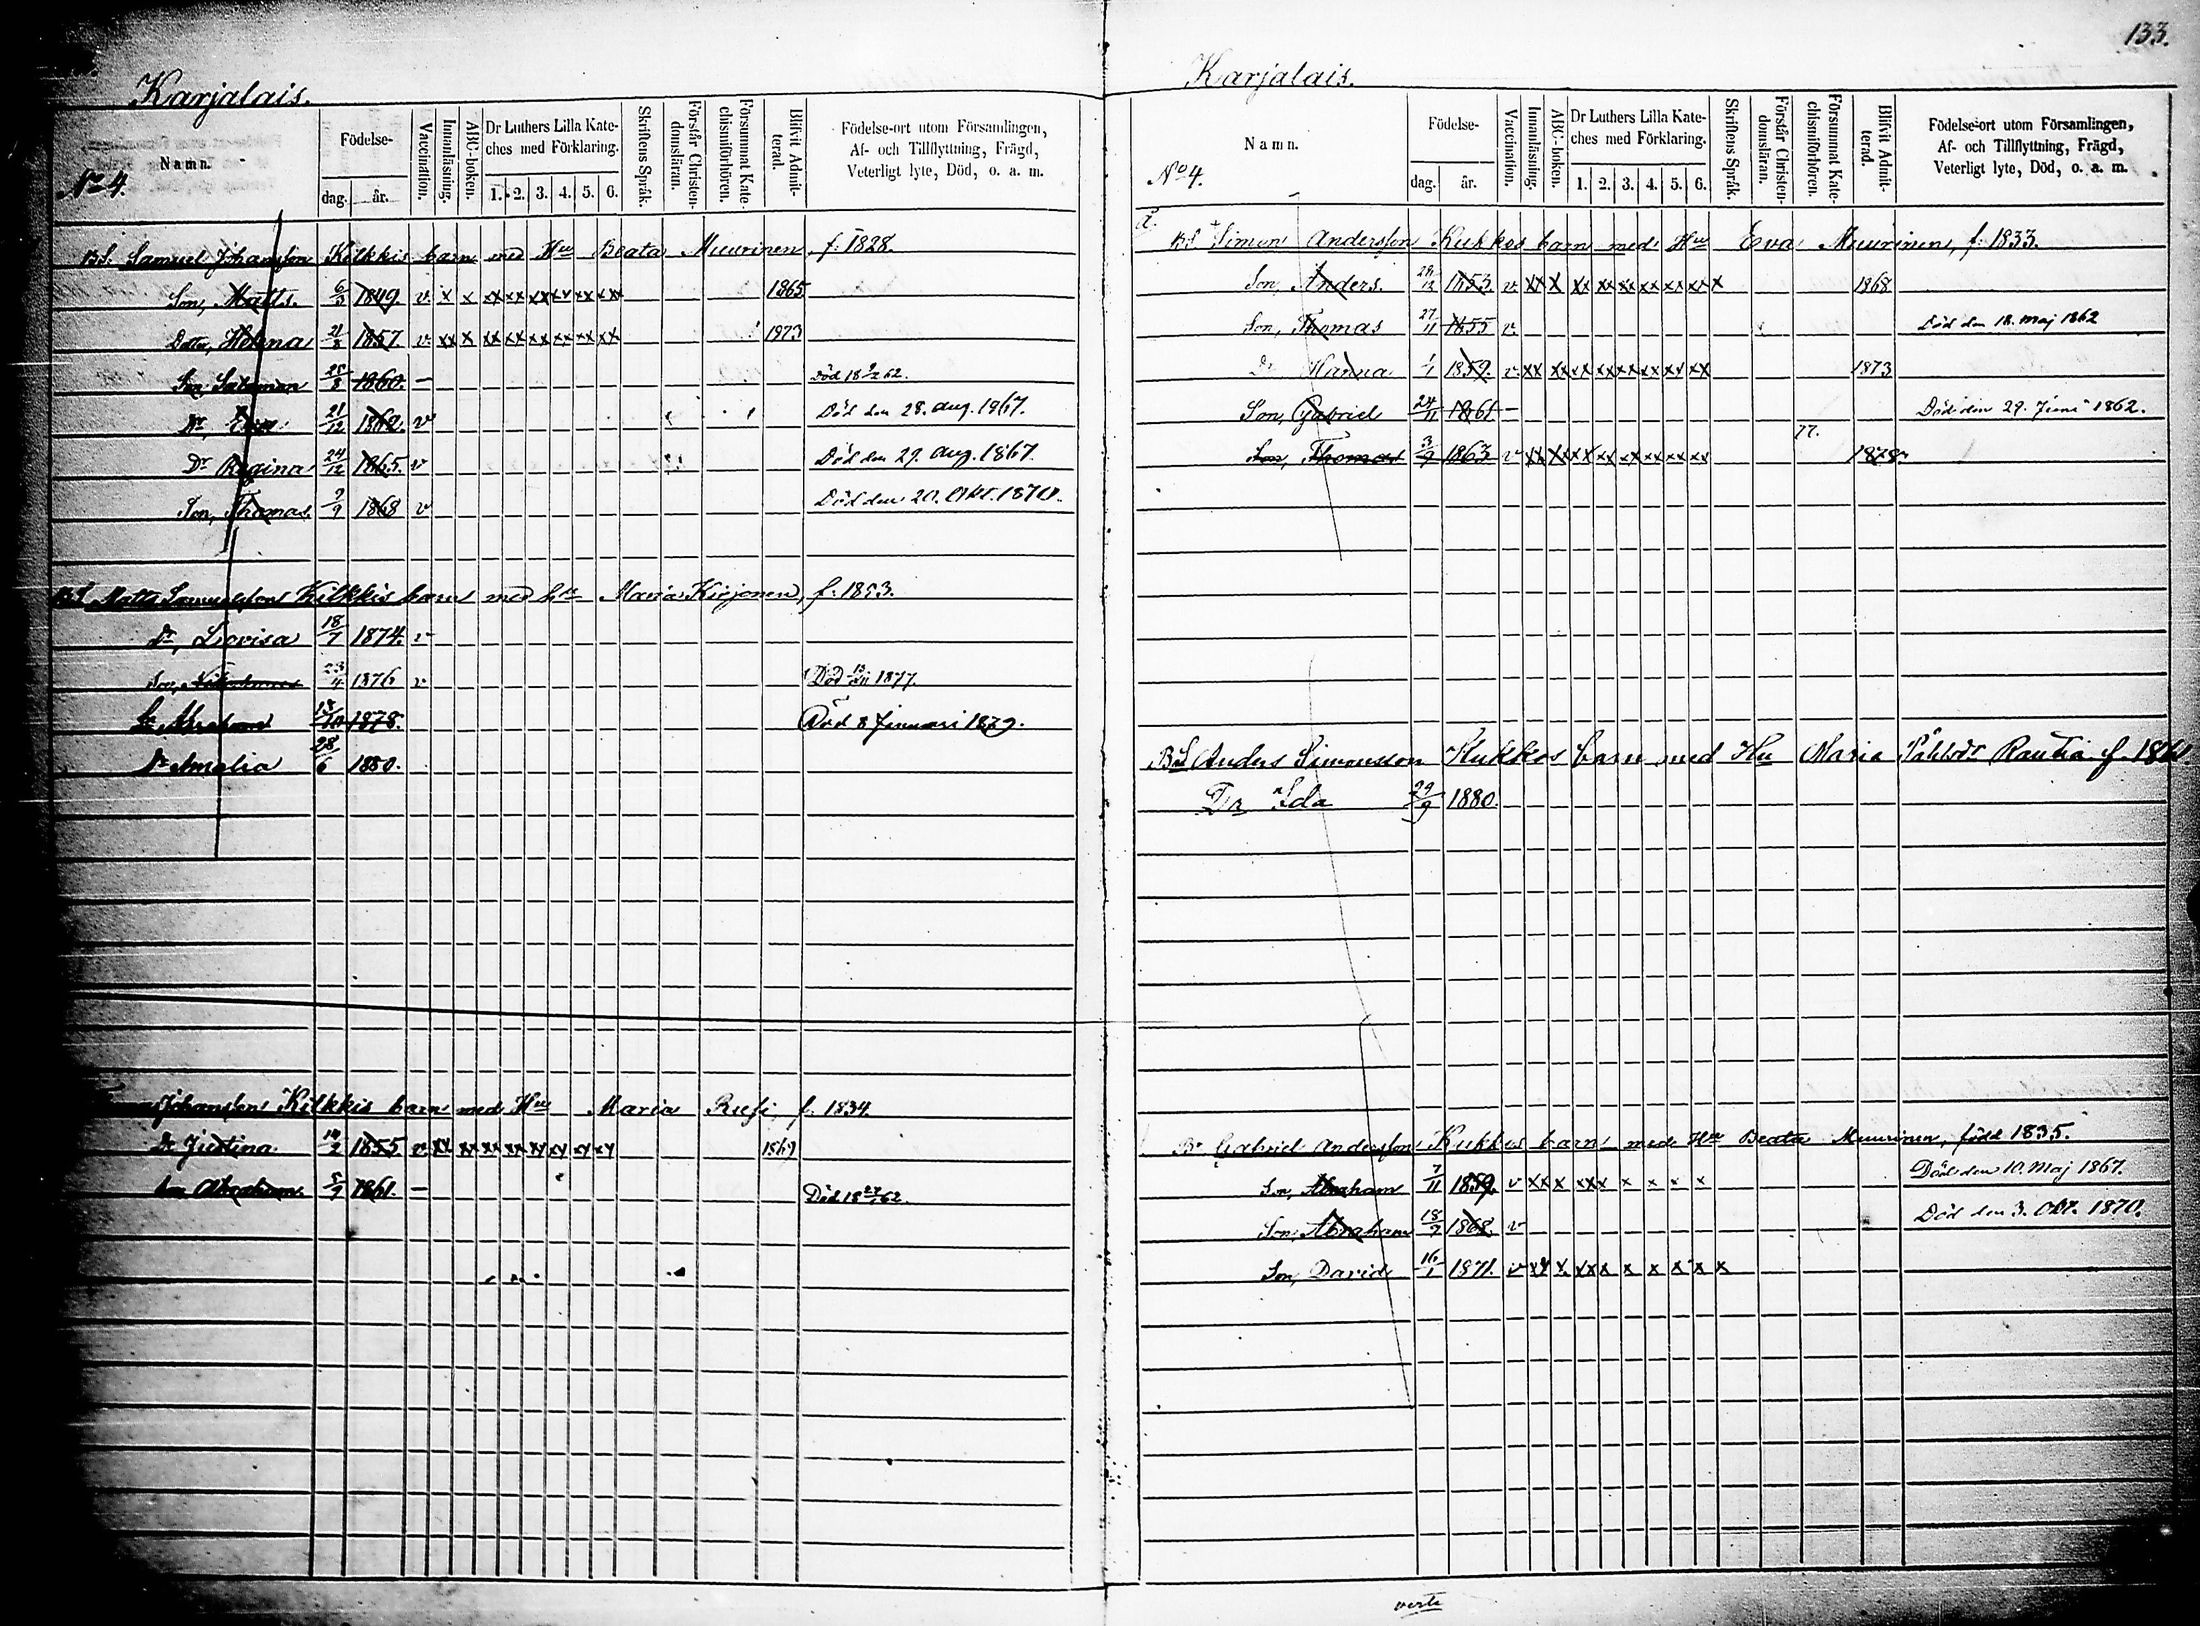 133.
Karjalais.
Namn.
No 4.
Födelse-
dag. år.
Vaccination.
Innanläsning.
ABC-boken.
Dr Luthers Lilla Kate-
ches med Förklaring.
1. 2. 3. 4. 5. 6.
Skriftens Språk.
Förstår Christen-
domsläran.
Försummat Kate-
chismiförhören.
Blifvit Admit-
terad.
Födelse-ort utom Församlingen,
Af- och Tillflyttning, Frägd,
Veterligt lyte, Död, o. a. m.
BS. Samuel Johansson Kilkkis barn med Hu Beata Muurinen, f. 1828.
Son, Matts. 6/3 1849. v x x xx xx xx xx xx xx 1865
Dotter, Helena 21/8 1857 v xx x xx xx xx xx xx xx 1873
Son, Salomon 25/8 1860. — Död 18 62.
Dr, 21/12 1862. v Död den 28. Aug. 1867.
Dr Regina 24/12 1865. v Död den 29. Aug. 1867.
Son, Thomas. 9/9 1868 v Död den 20. Okt. 1870.
BS Matts Samuelsson Kilkkis barn med hu Maria Kirjonen, f. 1853.
Dr, Lovisa 18/7 1874. v
Son, 23/4 1876 v Död 1877.
So Abraham 18/10 1878. Död 8 Januari 1879.
Dr Amalia 28/6 1880.
Johansson Kilkkis barn med Hu Maria Rusi, f. 1834.
Dr Justina. 14/2 1855 v xx xx xx xx xx xx xx xx 1869
Son Abraham. 5/9 1861. — Död 18 62.
Karjalais.
Namn.
No 4.
Födelse-
dag. år.
Vaccination.
Innanläsning.
ABC-boken.
Dr Luthers Lilla Kate-
ches med Förklaring.
1. 2. 3. 4. 5. 6.
Skriftens Språk.
Förstår Christen-
domsläran.
Försummat Kate-
chismiförhören.
Blifvit Admit-
terad.
Födelse-ort utom Församlingen,
Af- och Tillflyttning, Frägd,
Veterligt lyte, Död, o. a. m.
BS Simon Andersson Kukkos barn med Hu Eva Muurinen, f. 1833.
Son, Anders. 28/12 1853. v xx x xx xx xx xx xx xx x 1868
Son, Thomas 27/11 1855 v. Död den 18. maj 1862
Dr Hanna 1/1 1859. v xx xx xx xx xx xx xx xx 1873
Son, Gabriel 24/11 1861 — Död den 29. Juni 1862.
77.
Son, Thomas 3/9 1863 v xx xx xx xx xx xx xx xx 1878
BS Anders Simonsson Kukkos barn med Hu Maria Påhlsdr Rautia f. 1861
Dr Ida 29/9 1880.
Br Gabriel Andersson Kukkos barn med Hu Beata Muurinen, född 1835.
Son, Abraham 7/11 1859. v xx x xxx x x x x Död den 10. Maj 1867.
Son, Abraham 18/9 1868. v Död den 3. Okt. 1870.
Son, David 16/1 1871. v xx x xx x x x x x x
verte